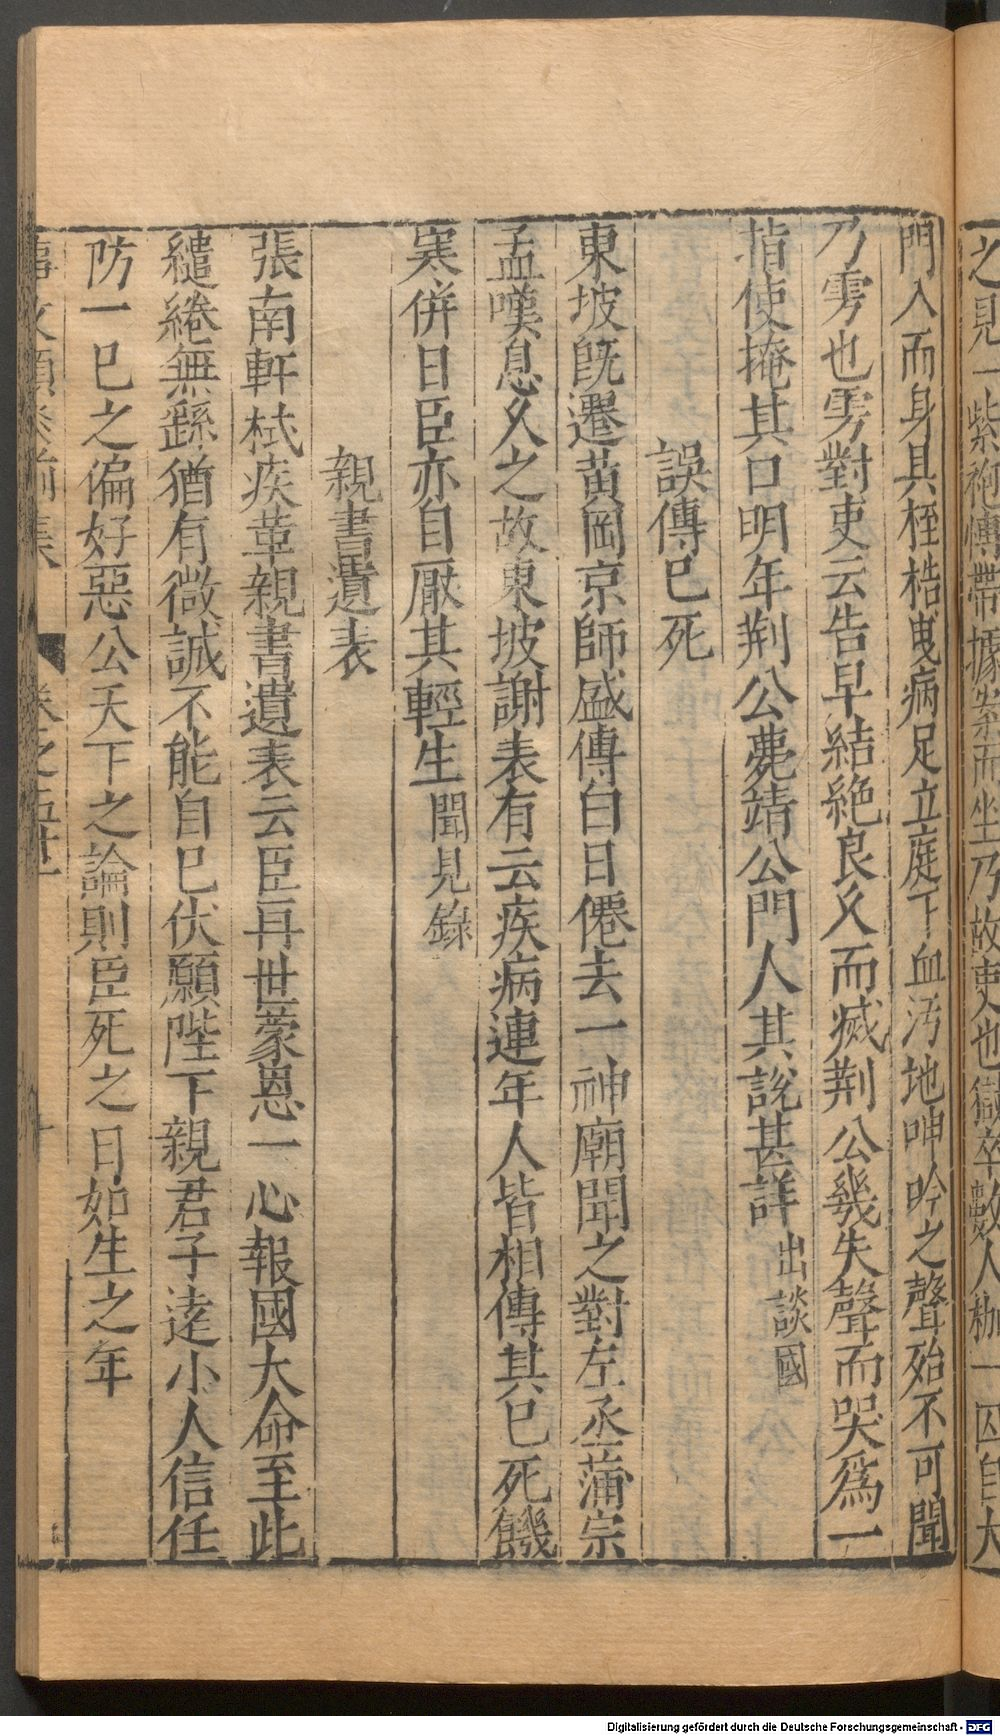 之見一紫袍博帶據案而坐乃故吏也獄卒數人枷一囚自大
門入而身具桎梏曳病足立庭下血汚地呻吟之聲殆不可聞
乃雱也雱對吏云告早結絶良久而滅荆公幾失聲而哭爲一
指使掩其口明年荆公薨靖公門人其說甚詳出談國
誤傳已死
東坡旣遷黃岡京師盛傳白日僊去一神廟聞之對左丞蒲宗
孟嘆息久之故東坡謝表有云疾病連年人皆相傳其已死饑
寒併日臣亦自厭其輕生聞見錄
親書遺表
張南軒栻疾革親書遺表云臣再世蒙恩一心報國大命至此
繾綣無繇猶有微誠不能自已伏願陛下親君子逺小人信任
防一已之偏好惡公天下之論則臣死之日如生之年
事文類聚前集 卷之五十
Digitalisierung gefördert durch die Deutsche Forschungsgemeinschaft - DFG